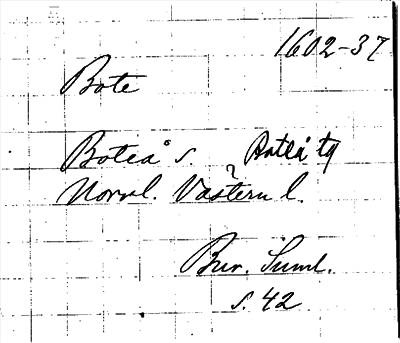 1602-37
Bote
Boteå s. Boteå tg
Norrl. Västern l.
?
Bur. Suml.
s. 42